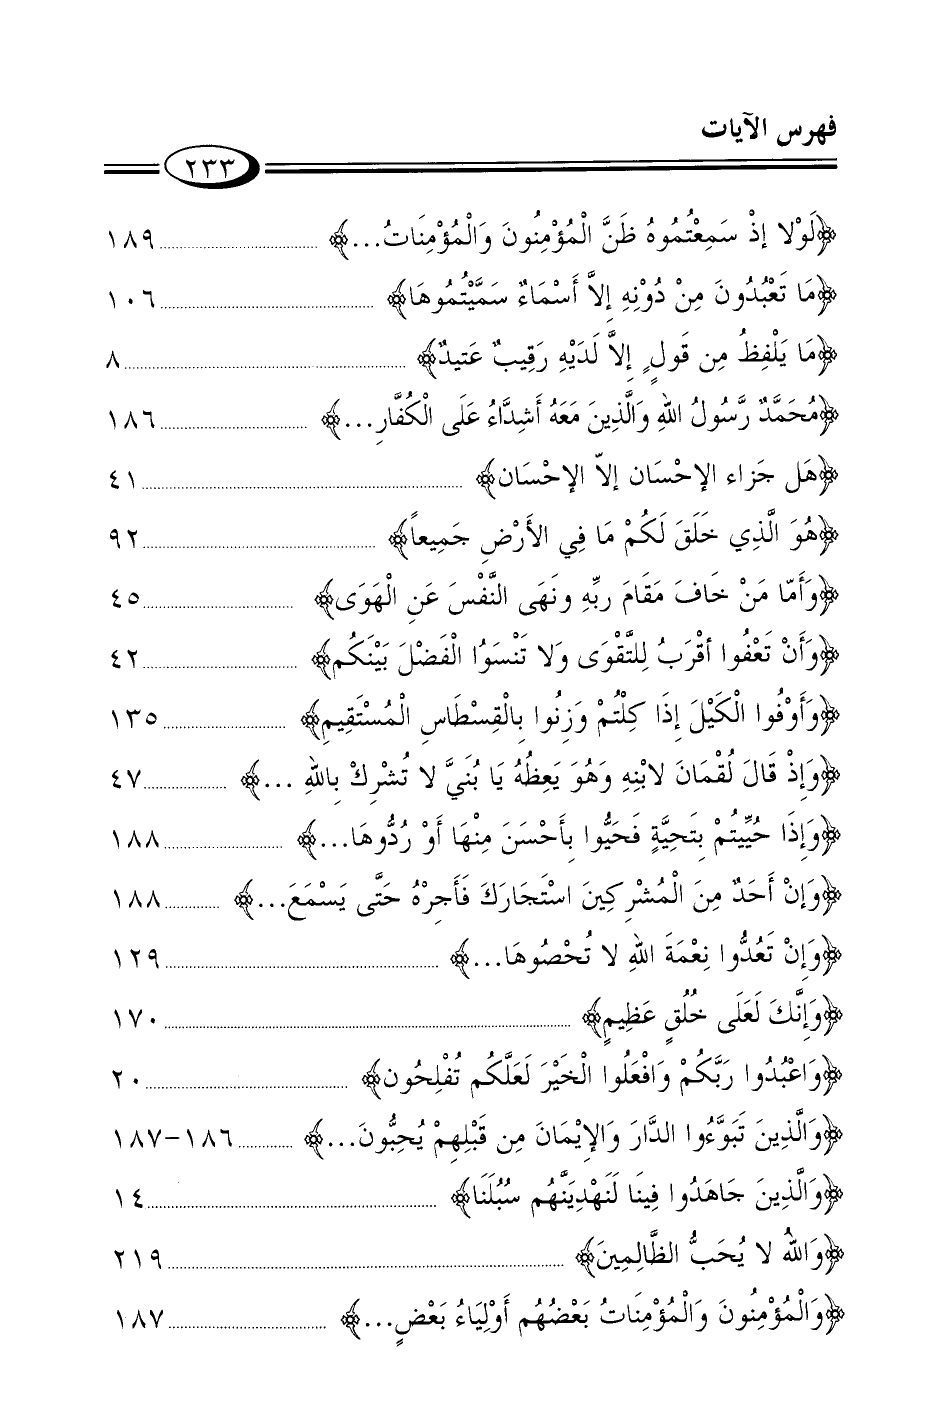 فهرس الآيات
٢٣٣
﴿لَوْلا إذْ سَمِعْتُمُوهُ ظَنَّ الْمُؤْمِنُونَ وَالْمُؤْمِنَاتُ...﴾ ١٨٩
﴿مَا تَعْبُدُونَ مِنْ دُوْنِهِ إلاَّ أَسْمَاءٌ سَمَّيْتُمُوهَا﴾ ١٠٦
﴿مَا يَلْفِظُ مِن قَولٍ إلاَّ لَدَيْهِ رَقِيبٌ عَتيدٌ﴾ ٨
﴿مُحَمَّدٌ رَّسُولُ اللهِ وَالَّذِينَ مَعَهُ أَشِدَّاءُ عَلَى الْكُفَّارِ...﴾ ١٨٦
﴿هَل جَزاء الإحْسَان إلاّ الإحْسَان﴾ ٤١
﴿هُوَ الَّذِي خَلَقَ لَكُمْ مَا فِي الأَرْضِ جَمِيعاً﴾ ٩٢
﴿وَأَمّا مَنْ خَافَ مَقَامَ ربِّهِ ونَهَى النَّفْسَ عَنِ الْهَوَى﴾ ٤٥
﴿وَأَنْ تَعْفُوا أقْرَبُ لِلتَّقْوَى وَلا تَنْسَوُا الْفَضْلَ بَيْنَكُم﴾ ٤٢
﴿وَأَوْفُوا الْكَيْلَ إذَا كِلْتُمْ وَزِنُوا بِالْقِسْطَاسِ الْمُسْتَقِيمِ﴾ ١٣٥
﴿وَإذْ قَالَ لُقْمَانَ لابْنِهِ وَهُوَ يَعِظُهُ يَا بُنَيَّ لا تُشْرِكْ بِاللهِ ...﴾ ٤٧
﴿وَإذَا حُيِّيتُمْ بِتَحِيَّةٍ فَحَيُّوا بِأَحْسَنَ مِنْهَا أَوْ رُدُّوهَا...﴾ ١٨٨
﴿وَإنْ أَحَدٌ مِنَ الْمُشْرِكِينَ اسْتَجَارَكَ فَأَجِرْهُ حَتَّى يَسْمَعَ...﴾ ١٨٨
﴿وَإنْ تَعُدُّوا نِعْمَةَ اللهِ لا تُحْصُوهَا...﴾ ١٢٩
﴿وَإنَّكَ لَعَلَى خُلُقٍ عَظِيمٍ﴾ ١٧٠
﴿وَاعْبُدُوا رَبَّكُمْ وَافْعَلُوا الْخَيْرَ لَعَلَّكُم تُفْلِحُون﴾ ٢٠
﴿وَالَّذِينَ تَبَوَّءُوا الدَّارَ وَالإيْمَانَ مِن قَبْلِهِمْ يُحِبُّونَ...﴾ ١٨٦-١٨٧
﴿وَالَّذِينَ جَاهَدُوا فِينَا لَنَهْدِيَنَّهُم سُبُلَنَا﴾ ١٤
﴿وَاللهُ لا يُحَبُّ الظَّالِمِينَ﴾ ٢١٩
﴿وَالْمُؤْمِنُونَ وَالْمُؤْمِنَاتُ بَعْضُهُم أَوْلِيَاءُ بَعْضٍ...﴾ ١٨٧